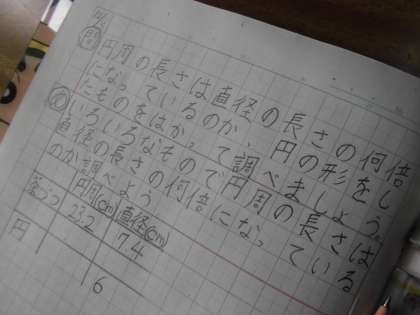 問
円周の長さは直径の長さの何倍
になっているのか、円の形をし
たものをはかって調べましょう。
いろいろなもので円周の長さは
直径の長さの何倍になっている
のか調べよう
円周(cm) 直径(cm)
つつ 23.2 7.4
円 16